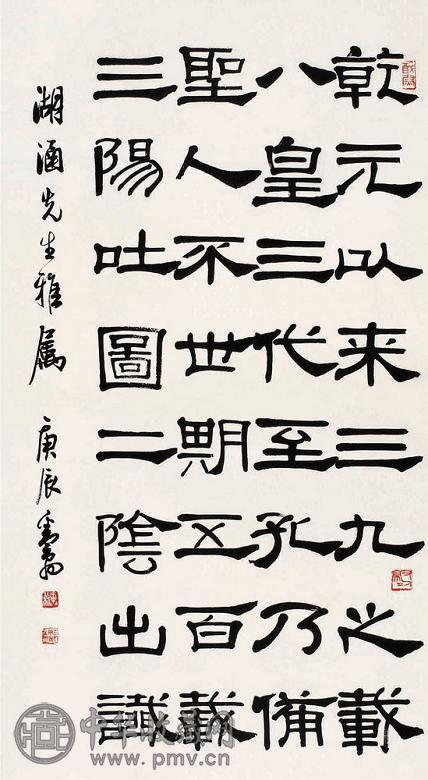 乾元以来三九之載
八皇三代至孔乃備
聖人不世期五百載
三陽吐圖二陰出讖
湖涵先生雅属 庚辰
中华收藏网
www.pmv.cn